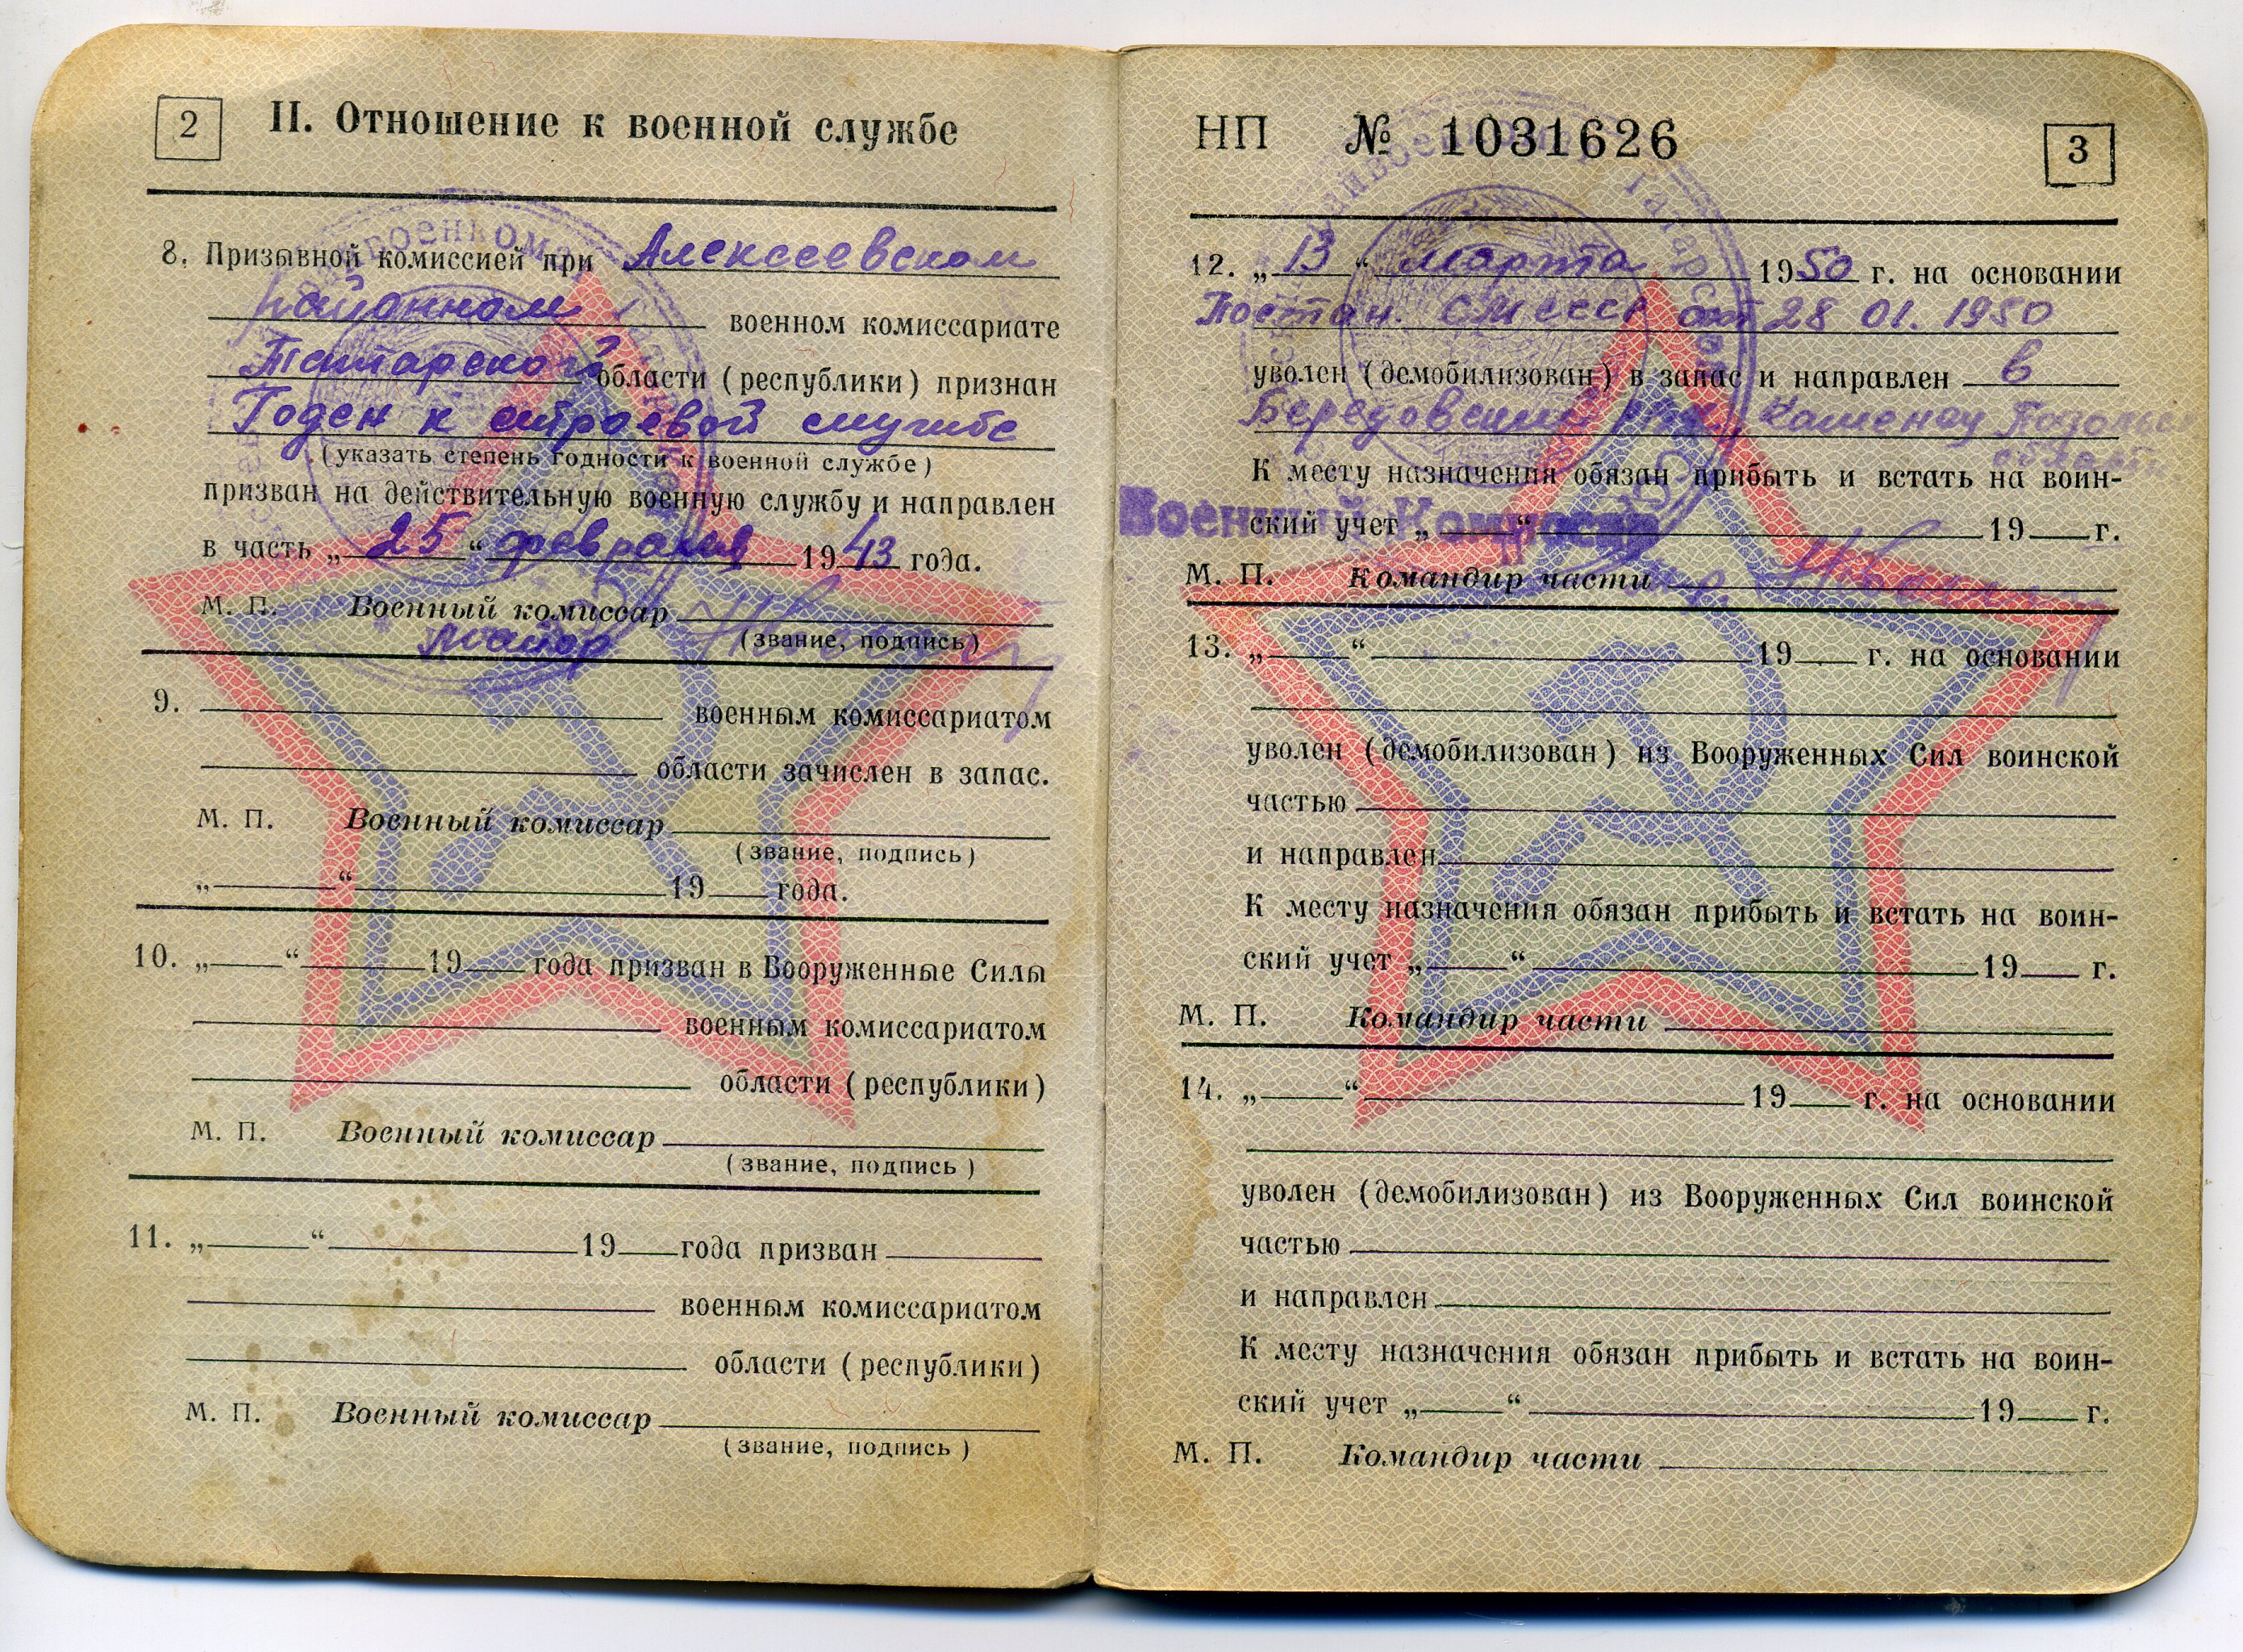 2
II. Отношение к военной службе
8. Призывной комиссией при Алексеевском
районном военном комиссариате
Татарской области (республики) признан
Годен к строевой службе
(указать степень годности к военной службе)
призван на действительную военную службу и направлен
в часть „25“ февраля 1943 года.
М. П. Военный комиссар
майор (звание, подпись)
9. военным комиссариатом
области зачислен в запас.
М. П. Военный комиссар
(звание, подпись)
„ “ 19 года.
10. „ “ 19 года призван в Вооруженные Силы
военным комиссариатом
области (республики)
М. П. Военный комиссар
(звание, подпись)
11. „ “ 19 года призван
военным комиссариатом
области (республики)
М. П. Военный комиссар
(звание, подпись)
НП № 1031626
3
12. „13“ марта 1950 г. на основании
Постан. СМ СССР от 28 01. 1950
уволен (демобилизован) в запас и направлен в
Каменец Подольск
К месту назначения обязан прибыть и встать на воин-
ский учет „ “ 19 г.
Военный Комиссар
М. П. Командир части
13. „ “ 19 г. на основании
уволен (демобилизован) из Вооруженных Сил воинской
частью
и направлен
К месту назначения обязан прибыть и встать на воин-
ский учет „ “ 19 г.
М. П. Командир части
14. „ “ 19 г. на основании
уволен (демобилизован) из Вооруженных Сил воинской
частью
и направлен
К месту назначения обязан прибыть и встать на воин-
ский учет „ “ 19 г.
М. П. Командир части